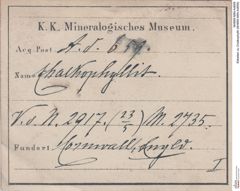 K. K. Mineralogisches Museum.
Acq. Post A. d. 6
Name Chalkophyllit.
V. o. N. 2917. (23/5) M. 2735.
Fundort Cornwall, Engld.
I